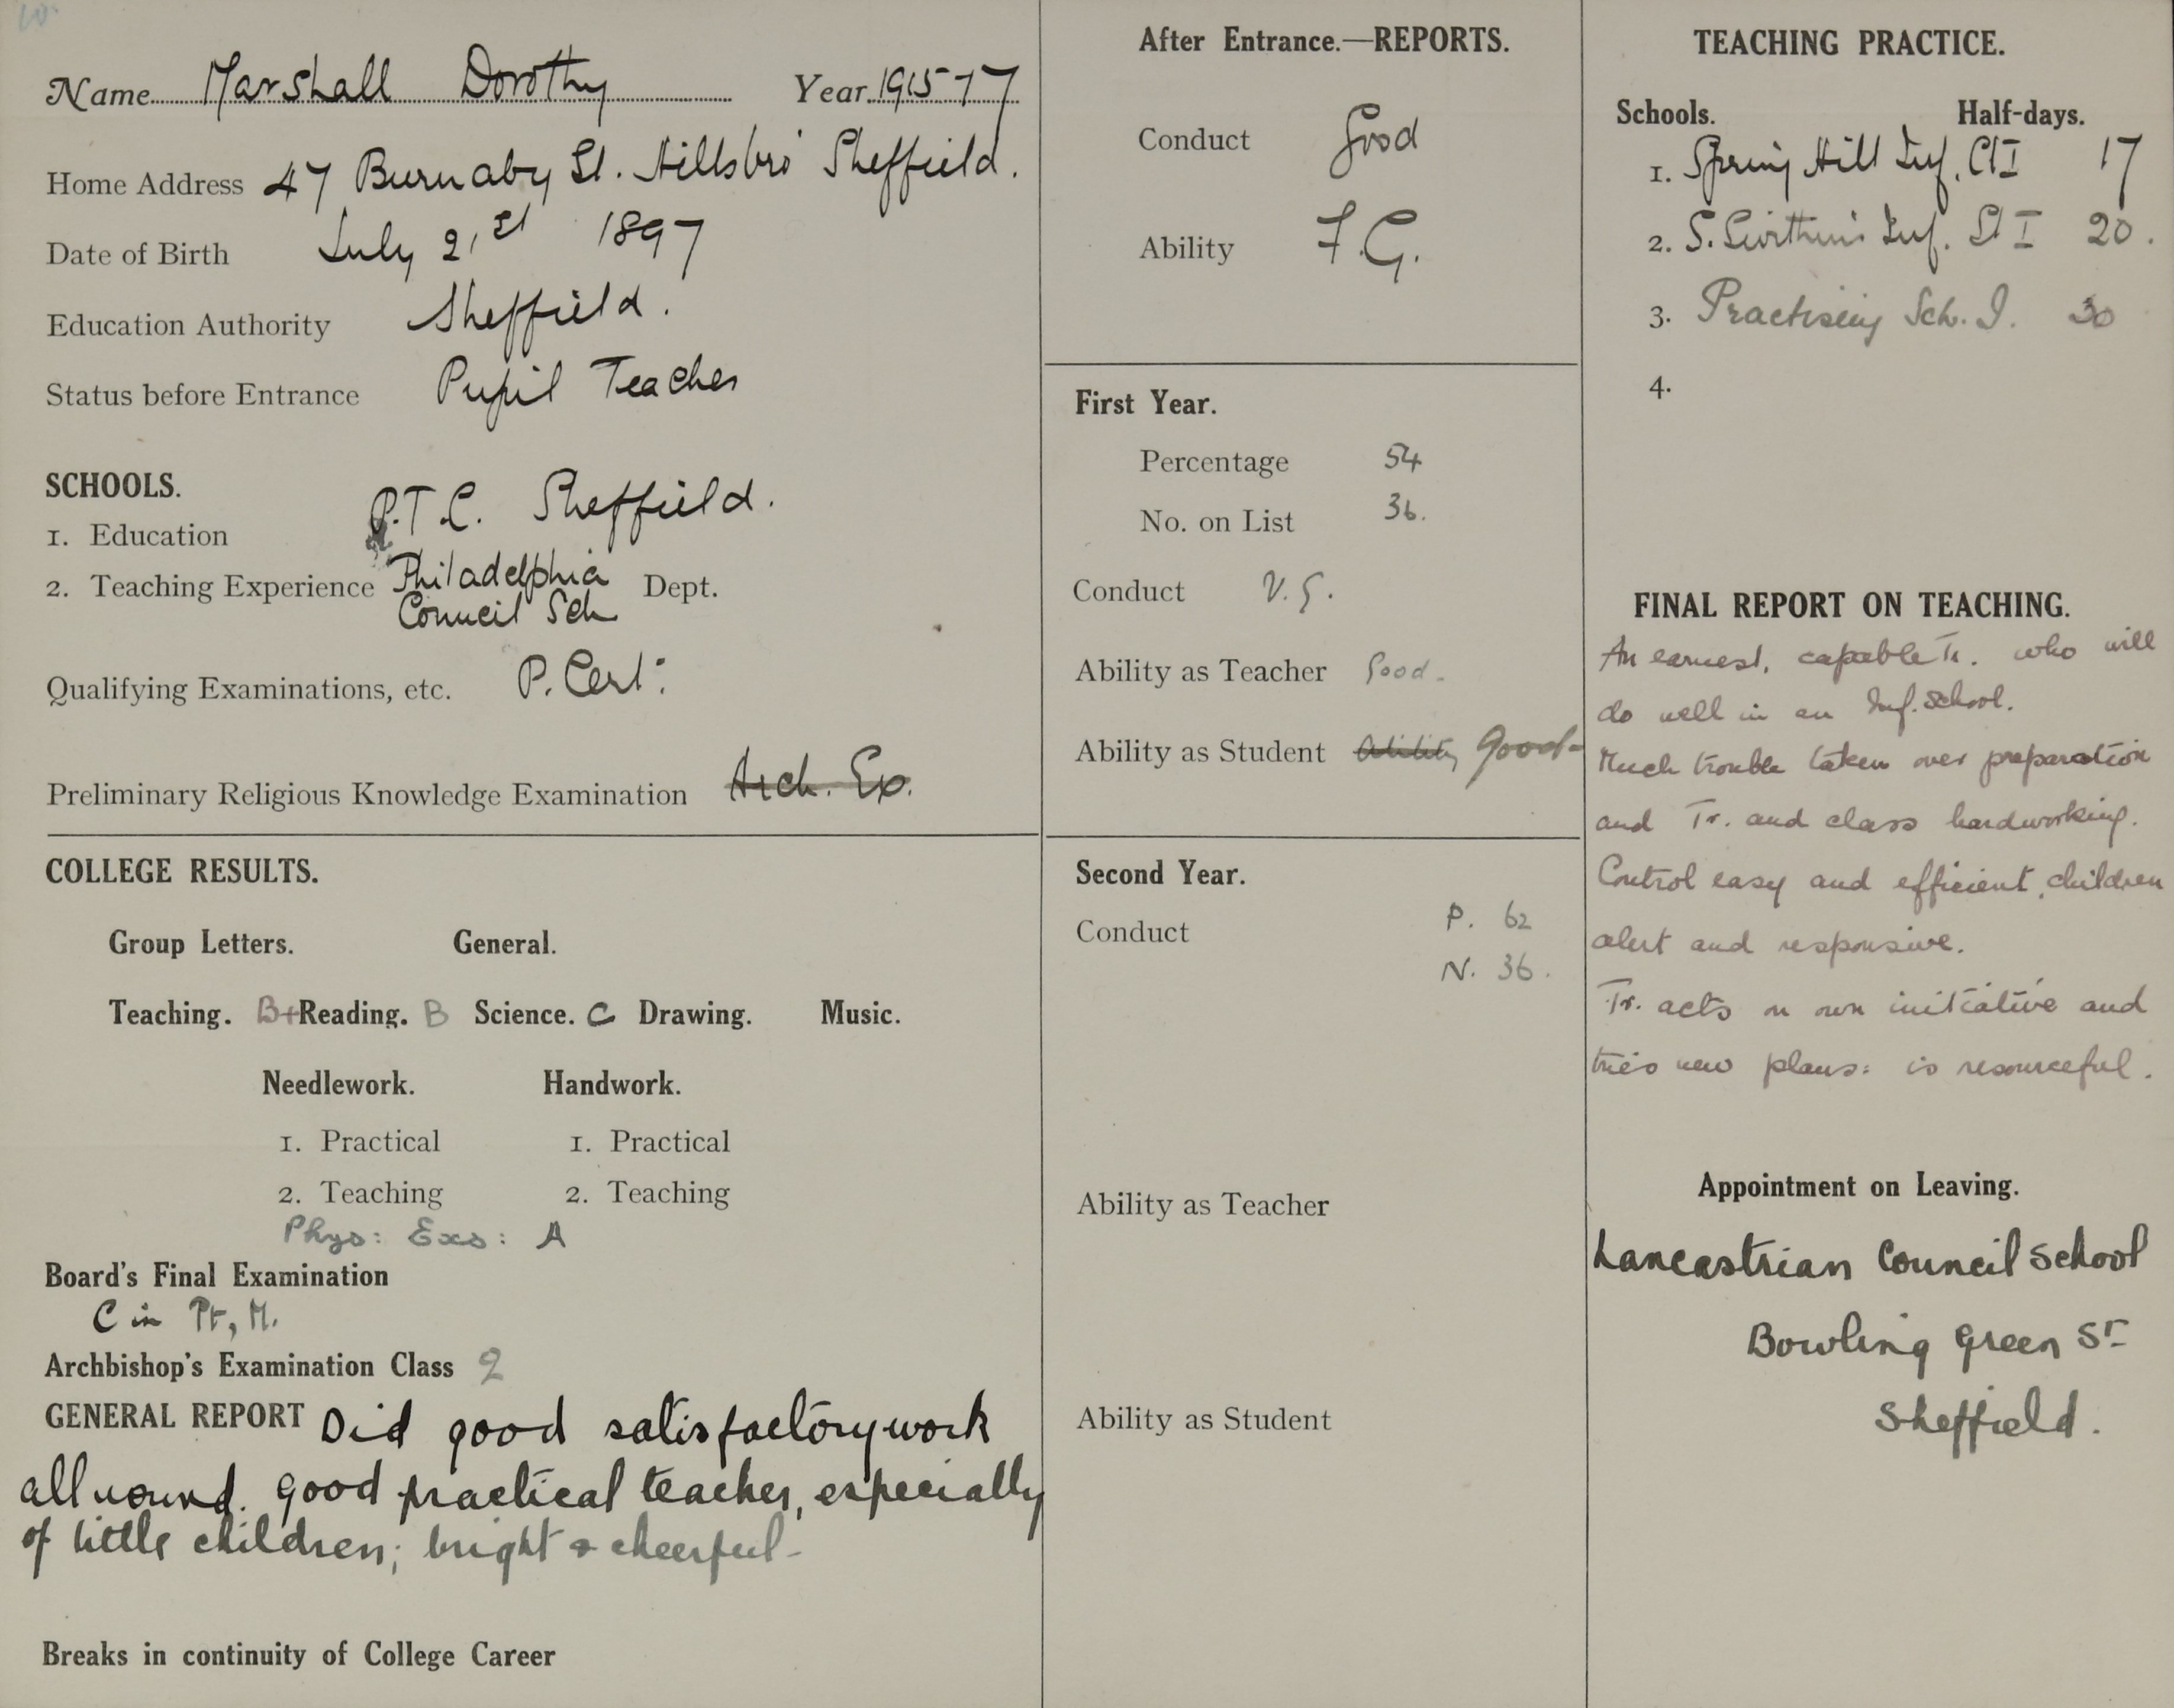 Name Marshall Dorothy Year 1915-17
Home Address 47 Burnaby St. Hillsbro' Sheffield.
Date of Birth July 21st 1897
Education Authority Sheffield.
Status before Entrance Pupil Teacher
SCHOOLS.
1. Education P.T.C. Sheffield.
2. Teaching Experience Philadelphia Dept.
Council Sch
Qualifying Examinations, etc. P. Cert:
Preliminary Religious Knowledge Examination Arch. Ex.
COLLEGE RESULTS.
Group Letters. General.
Teaching. B+ Reading. B Science. C Drawing. Music.
Needlework. Handwork.
1. Practical 1. Practical
2. Teaching 2. Teaching
Phys: Exs: A
Board's Final Examination
C in Pt, M.
Archbishop's Examination Class 2
GENERAL REPORT Did good satisfactory work
all round. Good practical teacher, especially
of little children; bright & cheerful-
Breaks in continuity of College Career
After Entrance.—REPORTS.
Conduct Good
Ability F.G.
First Year.
Percentage 54
No. on List 36.
Conduct V.G.
Ability as Teacher Good.
Ability as Student Ability Good-
Second Year.
Conduct P. 62
N. 36.
Ability as Teacher
Ability as Student
TEACHING PRACTICE.
Schools. Half-days.
1. Spring Hill Inf. Cl I 17
2. S. Swithin's Inf. St I 20.
3. Practising Sch. I. 30
4.
FINAL REPORT ON TEACHING.
An earnest, capable Tr. who will
do well in an Inf. School.
Much trouble taken over preparation
and Tr. and class hardworking.
Control easy and efficient, children
alert and responsive.
Tr. acts on own initiative and
tries new plans: is resourceful.
Appointment on Leaving.
Lancastrian Council School
Bowling Green St
Sheffield.